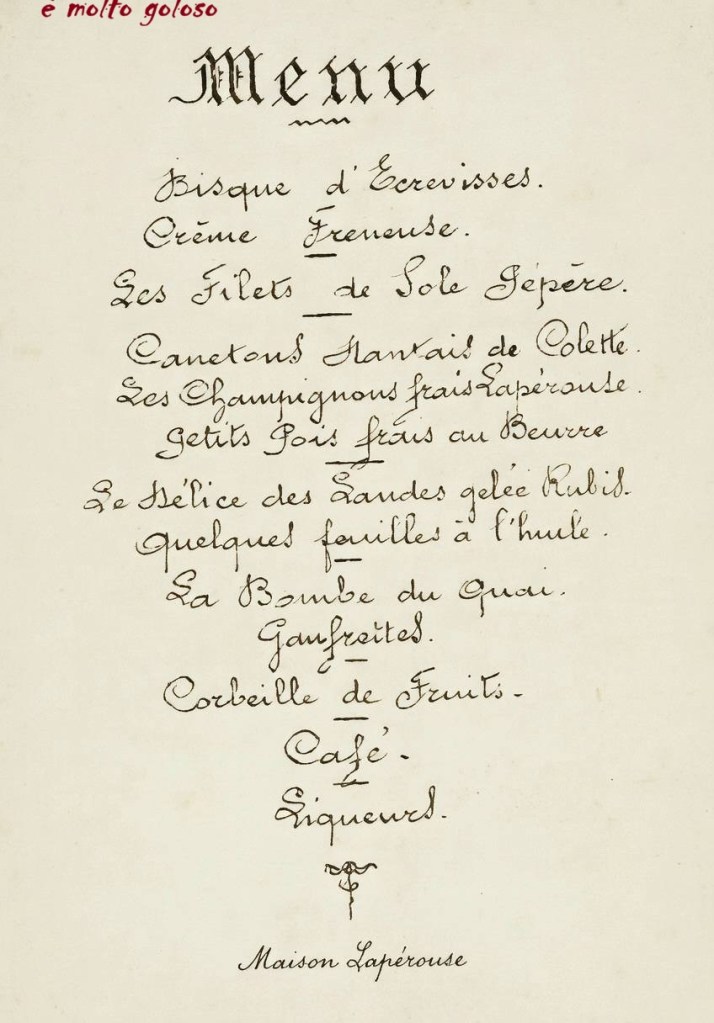 è molto goloso
Menu
Bisque d'Ecrevisses.
Crême Freneuse.
Les Filets de Sole Pépère.
Canetons Nantais de Colette.
Les Champignons frais Lapérouse.
petits Pois frais au Beurre
Le Délice des Landes gelée Rubis.
Quelques feuilles à l'huile.
La Bombe du Quai.
Gaufrettes.
Corbeille de Fruits-
Café-
Liqueurs.
Maison Lapérouse